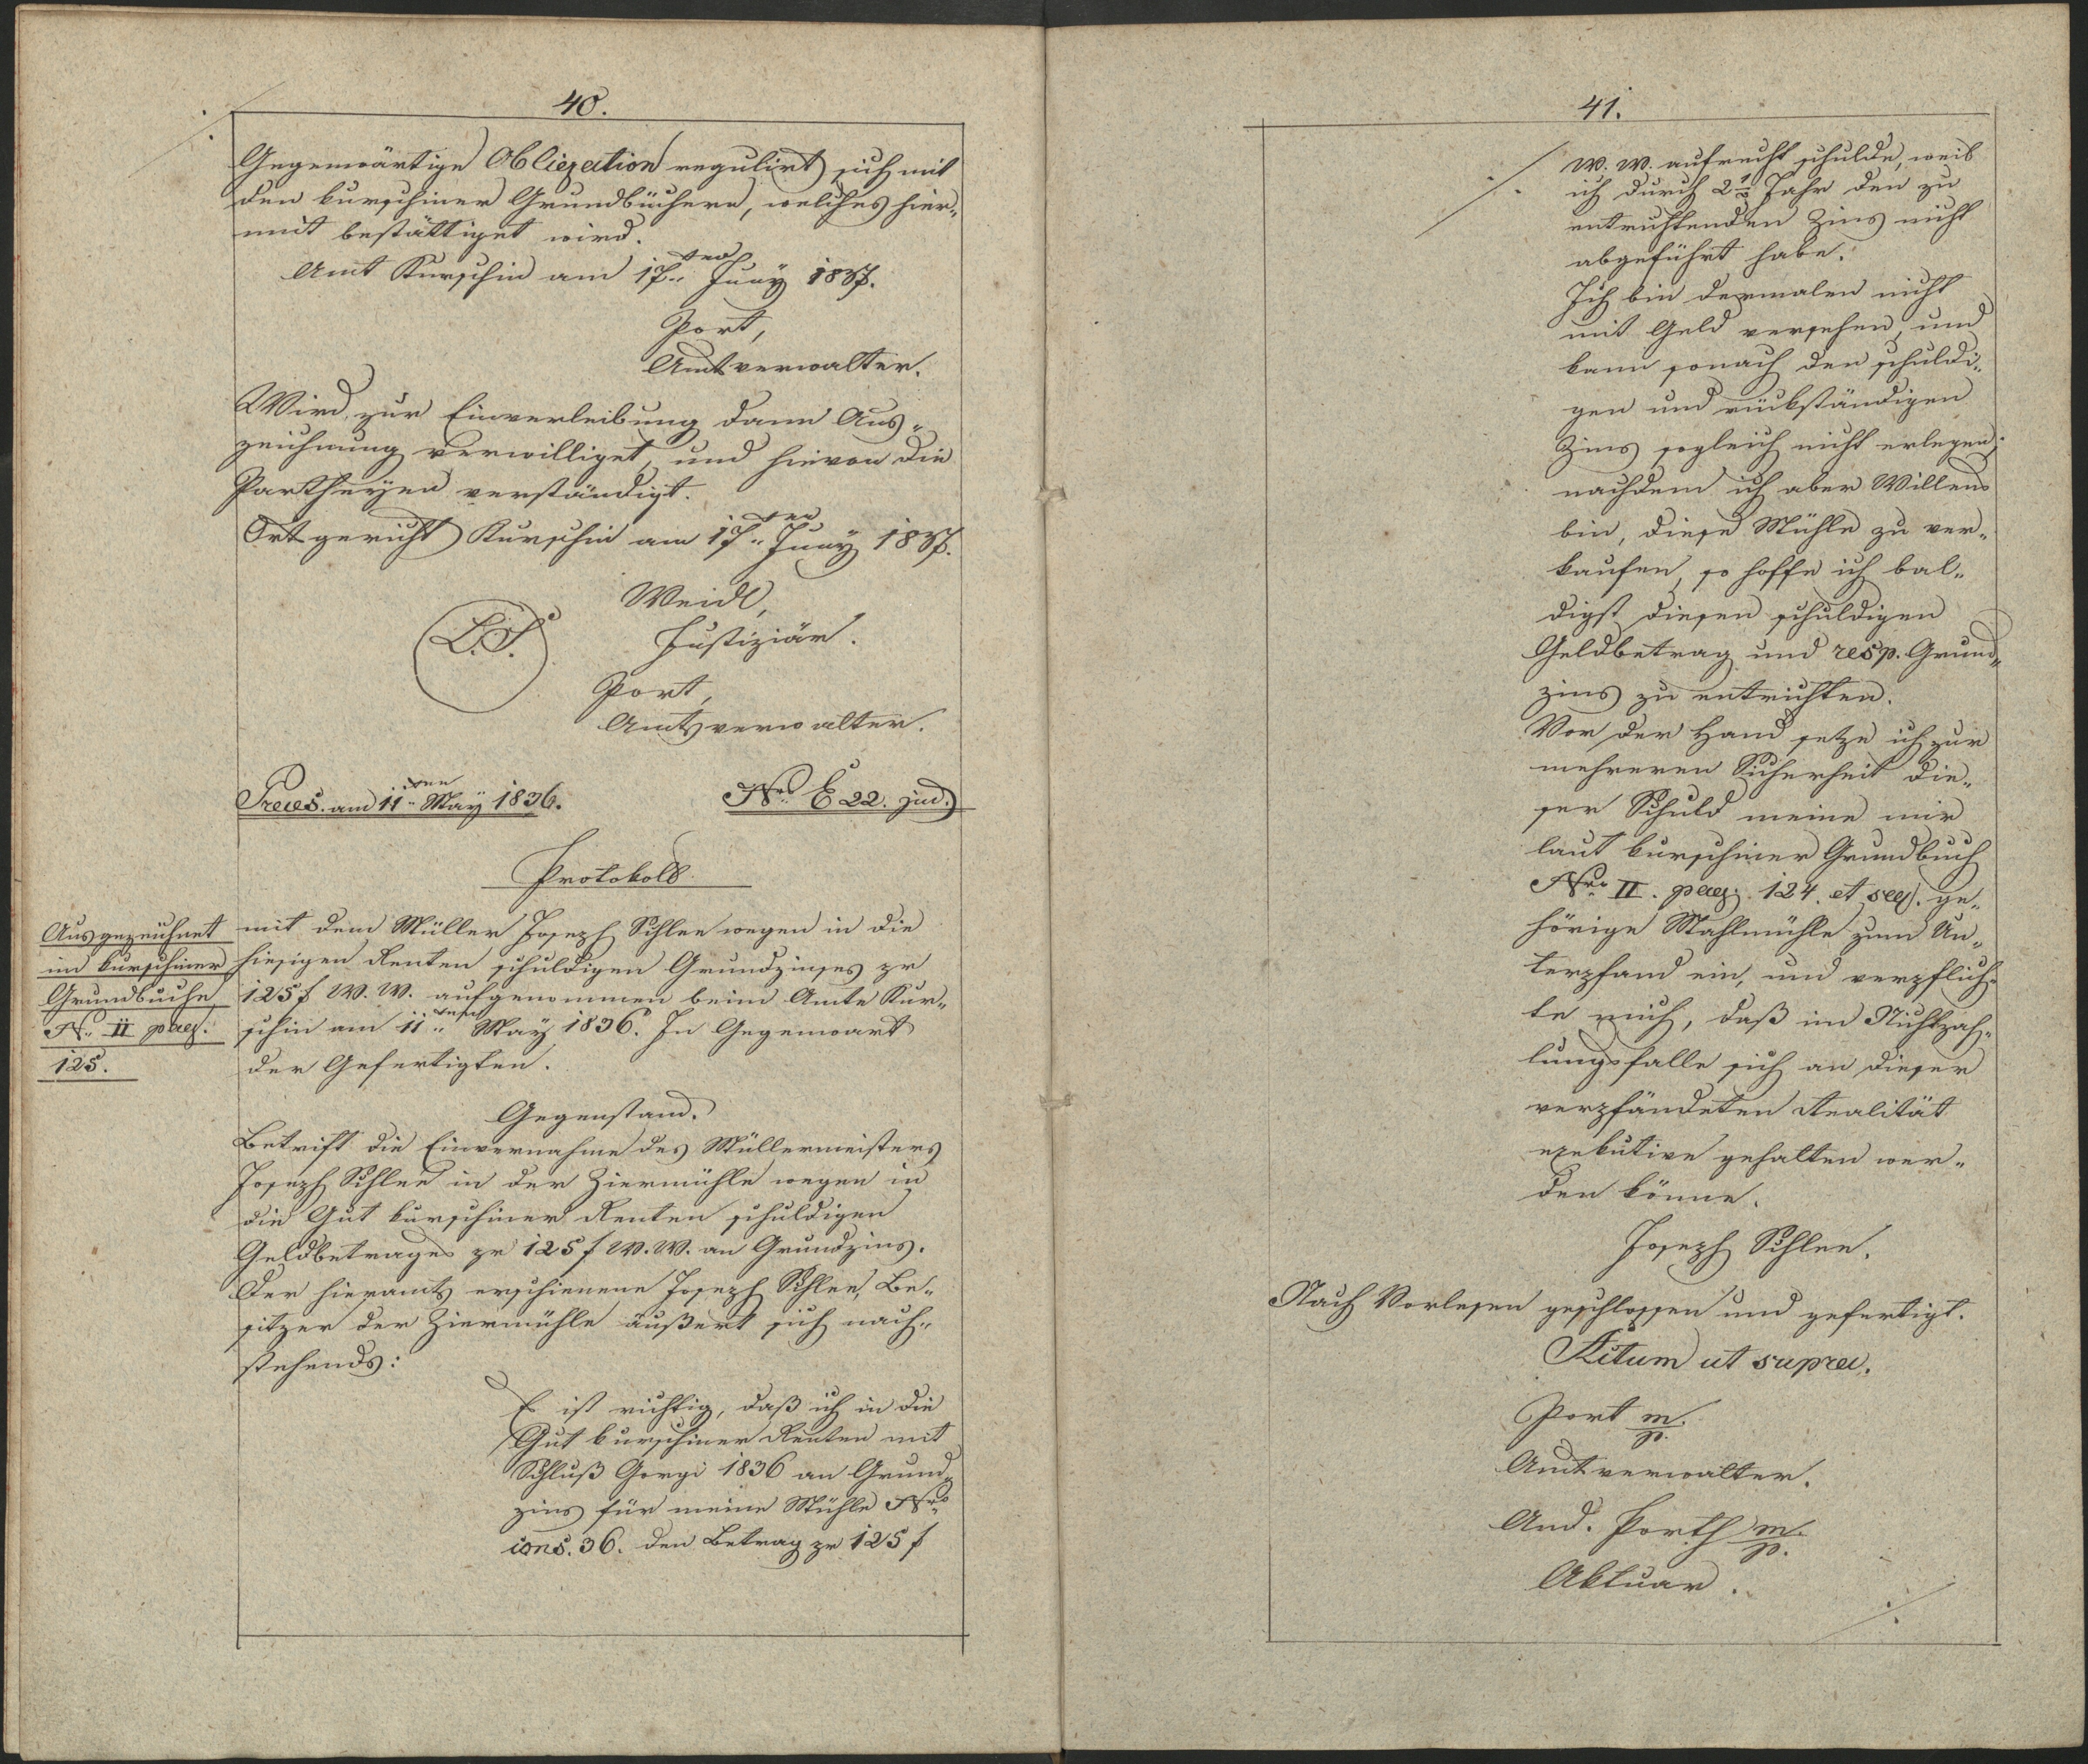 40.
Gegenwärtige Obligation regulirt sich mit
den kurschiner Grundbüchern, welches hier-
mit bestättiget wird.
Amt Kurschin am 17ten Juny 1837.
Port,
Amtverwalter.
Wird zur Einverleibung dann Aus-
zeichnung verwilliget, und hievon die
Partheyen verständigt.
Ortgericht Kurschin am 17ten Juny 1837.
Weidl,
L.S.
Justiziär.
Port,
Amtsverwalter.
Praes. am 11ten May 1836.
Nro E 22. jud.
Protokoll
Ausgezeichnet
im kurschiner
Grundbuche
N. II pag.
125.
mit dem Müller Joseph Schlee wegen in die
hiesigen Renten schuldigen Grundzinses pr
125 f W. W. aufgenommen beim Amte Kur-
schin am 11ten May 1836. In Gegenwart
der Gefertigten.
Gegenstand.
Betrift die Einvernahme des Müllermeisters
Joseph Schlee in der Ziermühle wegen in
die Gut kurschiner Renten schuldigen
Geldbetrages pr 125 f W. W. an Grundzins.
Der hieramts erschienene Joseph Schlee, Be-
sitzer der Ziermühle äußert sich nach-
stehends:
Es ist richtig, daß ich in die
Gut kurschiner Renten mit
Schluß Georgi 1836 an Grund-
zins für meine Mühle Nro
cons. 36. den Betrag pr 125 f
41.
W. W. aufrecht schulde, weil
ich durch 2 1/2 Jahr den zu
entrichtenden Zins nicht
abgeführt habe.
Ich bin dermalen nicht
mit Geld versehen, und
kann sonach den schuldi-
gen und rückständigen
Zins sogleich nicht erlegen;
nachdem ich aber Willens
bin, diese Mühle zu ver-
kaufen, so hoffe ich bal-
digst diesen schuldigen
Geldbetrag und resp. Grund-
zins zu entrichten.
Vor der Hand setze ich zur
mehreren Sicherheit die-
ser Schuld meine mir
laut kurschiner Grundbuch
Nro II. pag. 124. et seq. ge-
hörige Mahlmühle zum Un-
terpfand ein, und verpflich-
te mich, daß im Nichtzah-
lungsfalle sich an dieser
verpfändeten Realität
exekutive gehalten wer-
den könne.
Joseph Schlee.
Nach Vorlesen geschlossen und gefertigt.
Actum ut supra.
Port m.
p.
Amtverwalter.
And. Porth m.
p.
Aktuar.